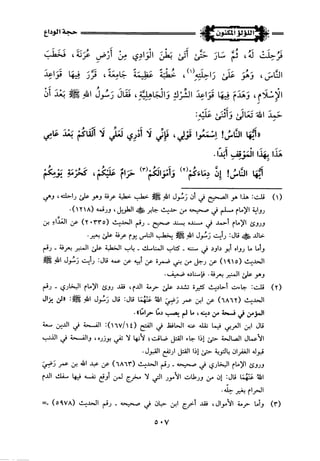 اللؤلؤ المكنون
حجة الوداع
فَرُحِلَتْ لَهُ، ثُمَّ سَارَ حَتَّى أَتَى بَطْنَ الْوَادِي مِنْ أَرْضِ عُرَنَةَ، فَخَطَبَ
النَّاسَ، وَهُوَ عَلَى رَاحِلَتِهِ(١)، خُطْبَةً عَظِيمَةً جَامِعَةً، قَرَّرَ فِيهَا قَوَاعِدَ
الْإِسْلَامِ، وَهَدَمَ فِيهَا قَوَاعِدَ الشِّرْكِ وَالْجَاهِلِيَّةِ، فَقَالَ رَسُولُ اللهِ ﷺ بَعْدَ أَنْ
حَمِدَ اللهَ تَعَالَى وَأَثْنَى عَلَيْهِ:
«أَيُّهَا النَّاسُ! اسْمَعُوا قَوْلِي، فَإِنِّي لَا أَدْرِي لَعَلِّي لَا أَلْقَاكُمْ بَعْدَ عَامِي
هَذَا بِهَذَا الْمَوْقِفِ أَبَدًا.
أَيُّهَا النَّاسُ! إِنَّ دِمَاءَكُمْ(٢) وَأَمْوَالَكُمْ(٣) حَرَامٌ عَلَيْكُمْ، كَحُرْمَةِ يَوْمِكُمْ
(١) قلت: هذا هو الصحيح في أن رَسُول اللهِ ﷺ خطب خطبة عرفة وهو على راحلته، وهي
رواية الإمام مسلم في صحيحه من حديث جابر ﷺ الطويل، ورقمه (١٢١٨).
وروى الإمام أحمد في مسنده بسند صحيح - رقم الحديث (٢٠٣٣٥) عن العَدَّاءِ بن
خالد ﷺ قال: رأيت رَسُول اللهِ ﷺ يخطب الناس يوم عرفة على بعير.
وأما ما رواه أبو داود في سننه - كتاب المناسك - باب الخطبة على المنبر بعرفة - رقم
الحديث (١٩١٥) عن رجل من بني ضمرة عن أبيه عن عمه قال: رأيت رَسُول اللهِ ﷺ
وهو على المنبر بعرفة. فإسناده ضعيف.
(٢) قلت: جاءت أحاديث كثيرة تشدد على حرمة الدم، فقد روى الإمام البخاري - رقم
الحديث (٦٨٦٢) عن ابن عمر رَضِيَ اللهُ عَنْهُمَا قال: قال رَسُول اللهِ ﷺ: «لن يزال
المؤمن في فسحة من دينه، ما لم يصب دمًا حرامًا».
قال ابن العربي فيما نقله عنه الحافظ في الفتح (١٦٧/١٤): الفسحة في الدين سعة
الأعمال الصالحة حتى إذا جاء القتل ضاقت؛ لأنها لا تفي بوزره، والفسحة في الذنب
قبوله الغفران بالتوبة حتى إذا القتل ارتفع القبول.
وروى الإمام البخاري في صحيحه - رقم الحديث (٦٨٦٣) عن عبد الله بن عمر رَضِيَ
اللهُ عَنْهُمَا قال: إن من ورطات الأمور التي لا مخرج لمن أوقع نفسه فيها سفك الدم
الحرام بغير حِلِّه.
(٣) وأما حرمة الأموال، فقد أخرج ابن حبان في صحيحه - رقم الحديث (٥٩٧٨) =
٥٠٧